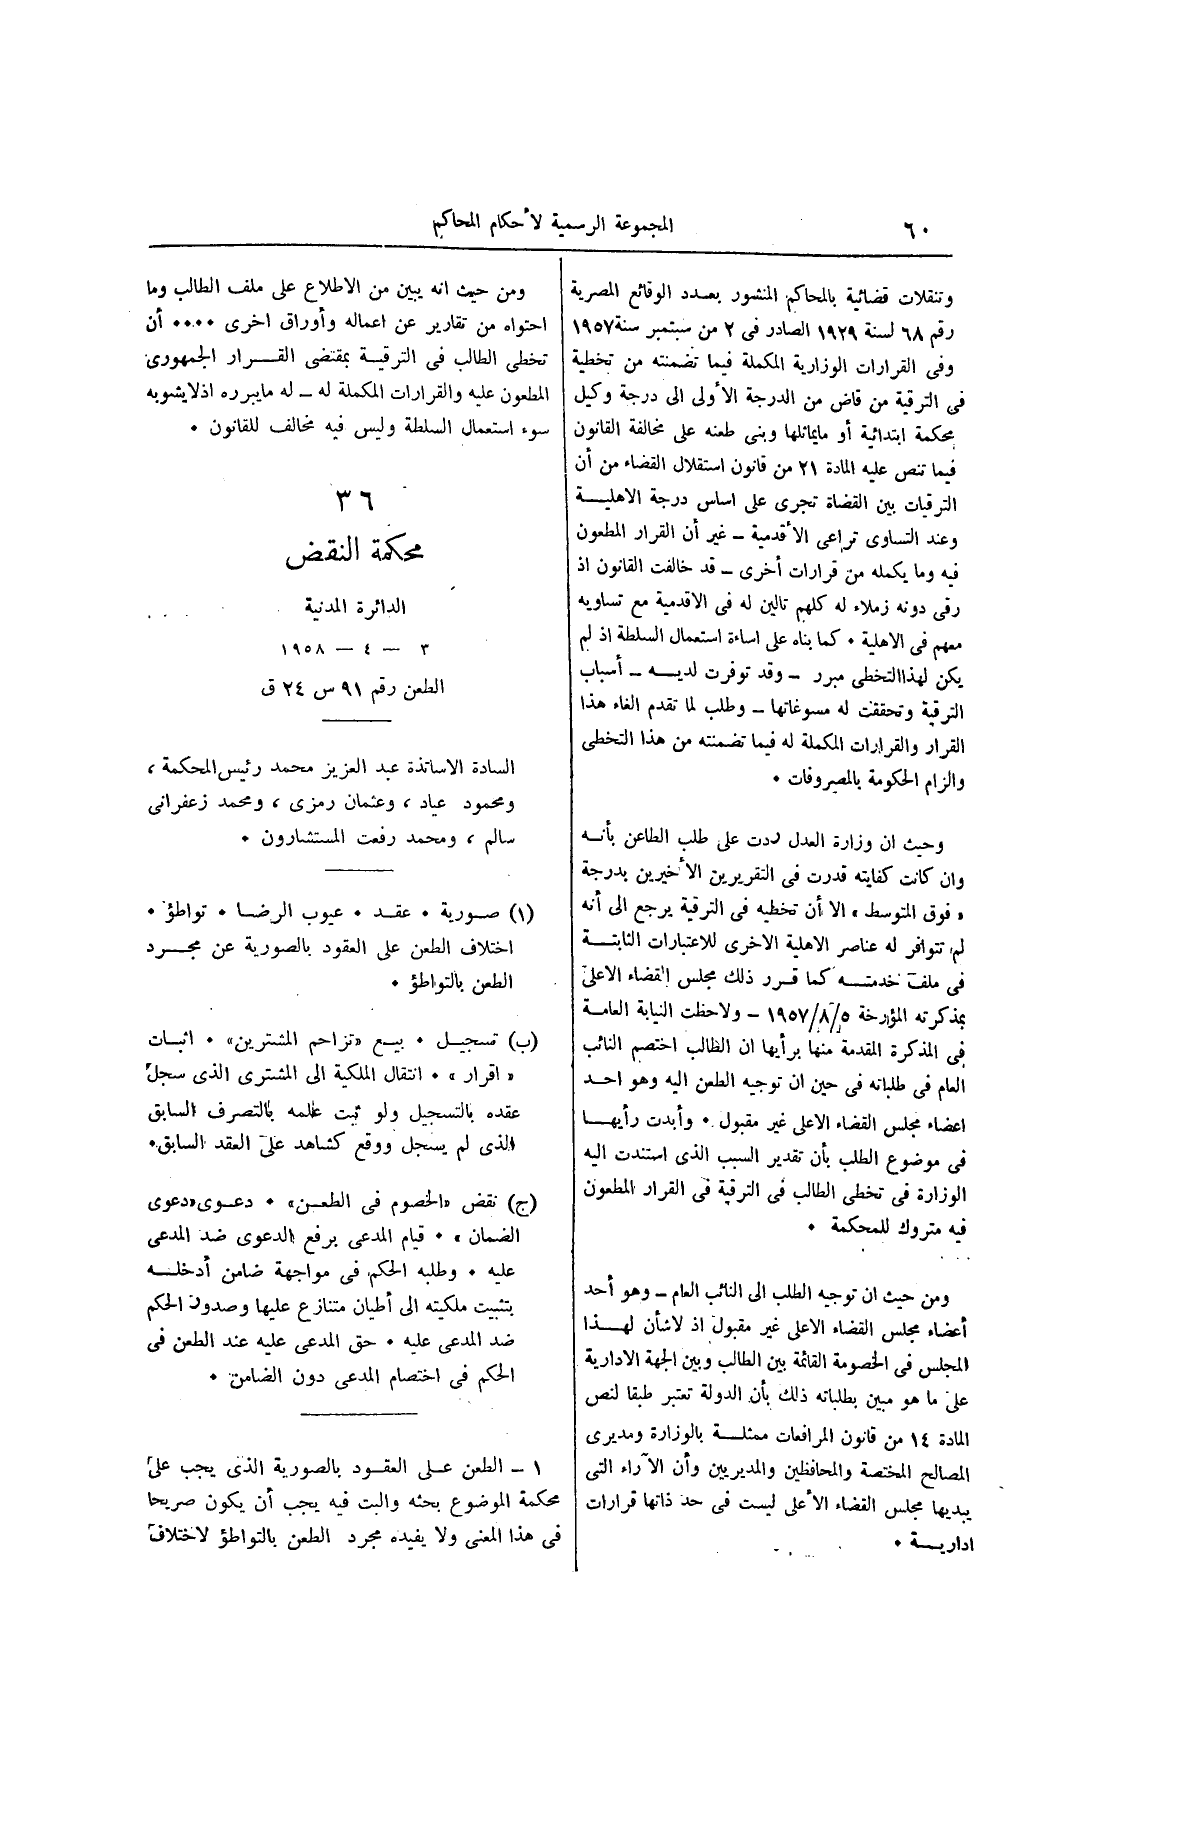 ٦٠
المجموعة الرسمية لأحكام المحاكم
وتنقلات قضائية بالمحاكم المنشور بعدد الوقائع المصرية
رقم ٦٨ لسنة ١٩٢٩ الصادر فى ٢ من سبتمبر سنة ١٩٥٧
وفى القرارات الوزارية المكملة فيما تضمنته من تخطية
فى الترقية من قاض من الدرجة الأولى الى درجة وكيل
محكمة ابتدائية أو مايماثلها وبنى طعنه على مخالفة القانون
فيما تنص عليه المادة ٢١ من قانون استقلال القضاء من أن
الترقيات بين القضاة تجرى على اساس درجة الاهلية
وعند التساوى تراعى الأقدمية – غير أن القرار المطعون
فيه وما يكمله من قرارات أخرى – قد خالفت القانون اذ
رقى دونه زملاء له كلهم تالين له فى الاقدمية مع تساويه
معهم فى الاهلية • كما بناه على اساءة استعمال السلطة اذ لم
يكن لهذا التخطى مبرر – وقد توفرت لديه – أسباب
الترقية وتحققت له مسوغاتها – وطلب لما تقدم الغاء هذا
القرار والقرارات المكملة له فيما تضمنته من هذا التخطى
والزام الحكومة بالمصروفات •
وحيث ان وزارة العدل ردت على طلب الطاعن بأنه
وان كانت كفايته قدرت فى التقريرين الأخيرين بدرجة
« فوق المتوسط » الا أن تخطيه فى الترقية يرجع الى أنه
لم تتوافر له عناصر الاهلية الاخرى للاعتبارات الثابتة
فى ملف خدمته كما قرر ذلك مجلس القضاء الاعلى
بمذكرته المؤرخة ١٩٥٧/٨/٥ – ولاحظت النيابة العامة
فى المذكرة المقدمة منها برأيها ان الطالب اختصم النائب
العام فى طلباته فى حين ان توجيه الطعن اليه وهو احد
اعضاء مجلس القضاء الاعلى غير مقبول • وأبدت رأيها
فى موضوع الطلب بأن تقدير السبب الذى استندت اليه
الوزارة فى تخطى الطالب فى الترقية فى القرار المطعون
فيه متروك للمحكمة •
ومن حيث ان توجيه الطلب الى النائب العام – وهو أحد
أعضاء مجلس القضاء الاعلى غير مقبول اذ لاشأن لهذا
المجلس فى الخصومة القائمة بين الطالب وبين الجهة الادارية
على ما هو مبين بطلباته ذلك بأن الدولة تعتبر طبقا لنص
المادة ١٤ من قانون المرافعات ممثلة بالوزارة ومديرى
المصالح المختصة والمحافظين والمديريين وأن الآراء التى
يبديها مجلس القضاء الأعلى ليست فى حد ذاتها قرارات
ادارية •
ومن حيث انه يبين من الاطلاع على ملف الطالب وما
احتواه من تقارير عن اعماله وأوراق اخرى ٠٠٠٠٠ أن
تخطى الطالب فى الترقية بمقتضى القرار الجمهورى
المطعون عليه والقرارات المكملة له – له مايبرره اذ لا يشوبه
سوء استعمال السلطة وليس فيه مخالف للقانون •
٣٦
محكمة النقض
الدائرة المدنية
٣ – ٤ – ١٩٥٨
الطعن رقم ٩١ س ٢٤ ق
السادة الاساتذة عبد العزيز محمد رئيس المحكمة ،
ومحمود عياد ، وعثمان رمزى ، ومحمد زعفرانى
سالم ، ومحمد رفعت المستشارون •
(١) صورية • عقد • عيوب الرضا • تواطؤ •
اختلاف الطعن على العقود بالصورية عن مجرد
الطعن بالتواطؤ •
(ب) تسجيل • بيع «تزاحم المشترين» • اثبات
« اقرار » • انتقال الملكية الى المشترى الذى سجل
عقده بالتسجيل ولو ثبت علمه بالتصرف السابق
الذى لم يسجل ووقع كشاهد على العقد السابق •
(ج) نقض «الخصوم فى الطعن» • دعوى «دعوى
الضمان » • قيام المدعى برفع الدعوى ضد المدعى
عليه • وطلبه الحكم فى مواجهة ضامن أدخله
بتثبيت ملكيته الى أطيان متنازع عليها وصدور الحكم
ضد المدعى عليه • حق المدعى عليه عند الطعن فى
الحكم فى اختصام المدعى دون الضامن •
١ – الطعن على العقود بالصورية الذى يجب على
محكمة الموضوع بحثه والبت فيه يجب أن يكون صريحا
فى هذا المعنى ولا يفيده مجرد الطعن بالتواطؤ لاختلاف